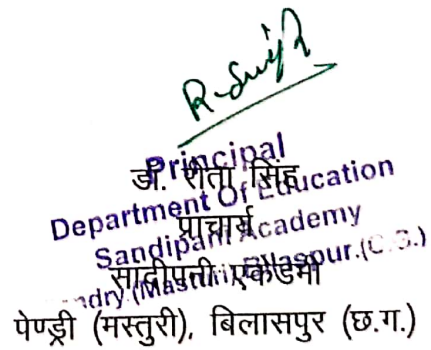 R-Singh
डॉ. रीता सिंह
प्राचार्य
सांदीपनी एकेडमी
पेण्ड्री (मस्तुरी), बिलासपुर (छ.ग.)
Principal
Department Of Education
Sandipani Academy
(Masturi) Bilaspur.(C.G.)